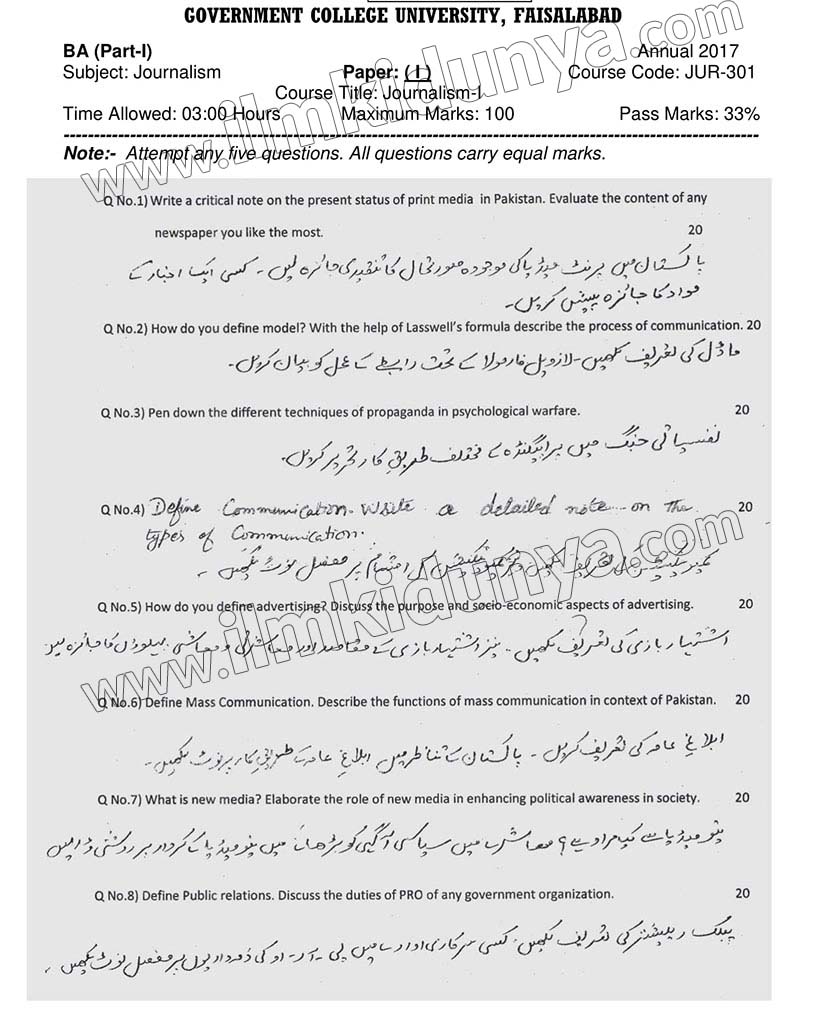 GOVERNMENT COLLEGE UNIVERSITY, FAISALABAD
BA (Part-I) Annual 2017
Subject: Journalism Paper: ( I ) Course Code: JUR-301
Course Title: Journalism-I
Time Allowed: 03:00 Hours Maximum Marks: 100 Pass Marks: 33%
Note:- Attempt any five questions. All questions carry equal marks.
www.ilmkidunya.com
Q No.1) Write a critical note on the present status of print media in Pakistan. Evaluate the content of any
newspaper you like the most. 20
پاکستان میں پرنٹ میڈیا کی موجودہ صورتحال کا تنقیدی جائزہ لیں۔ کسی ایک اخبار کے
مواد کا جائزہ پیش کریں۔
Q No.2) How do you define model? With the help of Lasswell's formula describe the process of communication. 20
ماڈل کی تعریف لکھیں۔ لازویل فارمولا کے تحت رابطے کے عمل کو بیان کریں۔
Q No.3) Pen down the different techniques of propaganda in psychological warfare. 20
نفسیاتی جنگ میں پراپیگنڈہ کے مختلف طریق کار تحریر کریں۔
Q No.4) Define Communication. Write a detailed note on the 20
types of Communication.
کمیونیکیشن کی تعریف لکھیں کمیونیکیشن کی اقسام پر مفصل نوٹ لکھیں۔
www.ilmkidunya.com
Q No.5) How do you define advertising? Discuss the purpose and socio-economic aspects of advertising. 20
اشتہار بازی کی تعریف لکھیں۔ نیز اشتہار بازی کے مقاصد اور معاشرتی و معاشی پہلوؤں کا جائزہ لیں
Q No.6) Define Mass Communication. Describe the functions of mass communication in context of Pakistan. 20
ابلاغِ عامہ کی تعریف کریں۔ پاکستان کے تناظر میں ابلاغِ عامہ کے طریق کار پر نوٹ لکھیں۔
Q No.7) What is new media? Elaborate the role of new media in enhancing political awareness in society. 20
نیو میڈیا سے کیا مراد ہے؟ معاشرے میں سیاسی آگہی کو بڑھانے میں نیو میڈیا کے کردار پر روشنی ڈالیں
Q No.8) Define Public relations. Discuss the duties of PRO of any government organization. 20
پبلک ریلیشنز کی تعریف لکھیں۔ کسی سرکاری ادارے میں پی۔آر۔او کی ذمہ داریوں پر مفصل نوٹ لکھیں۔